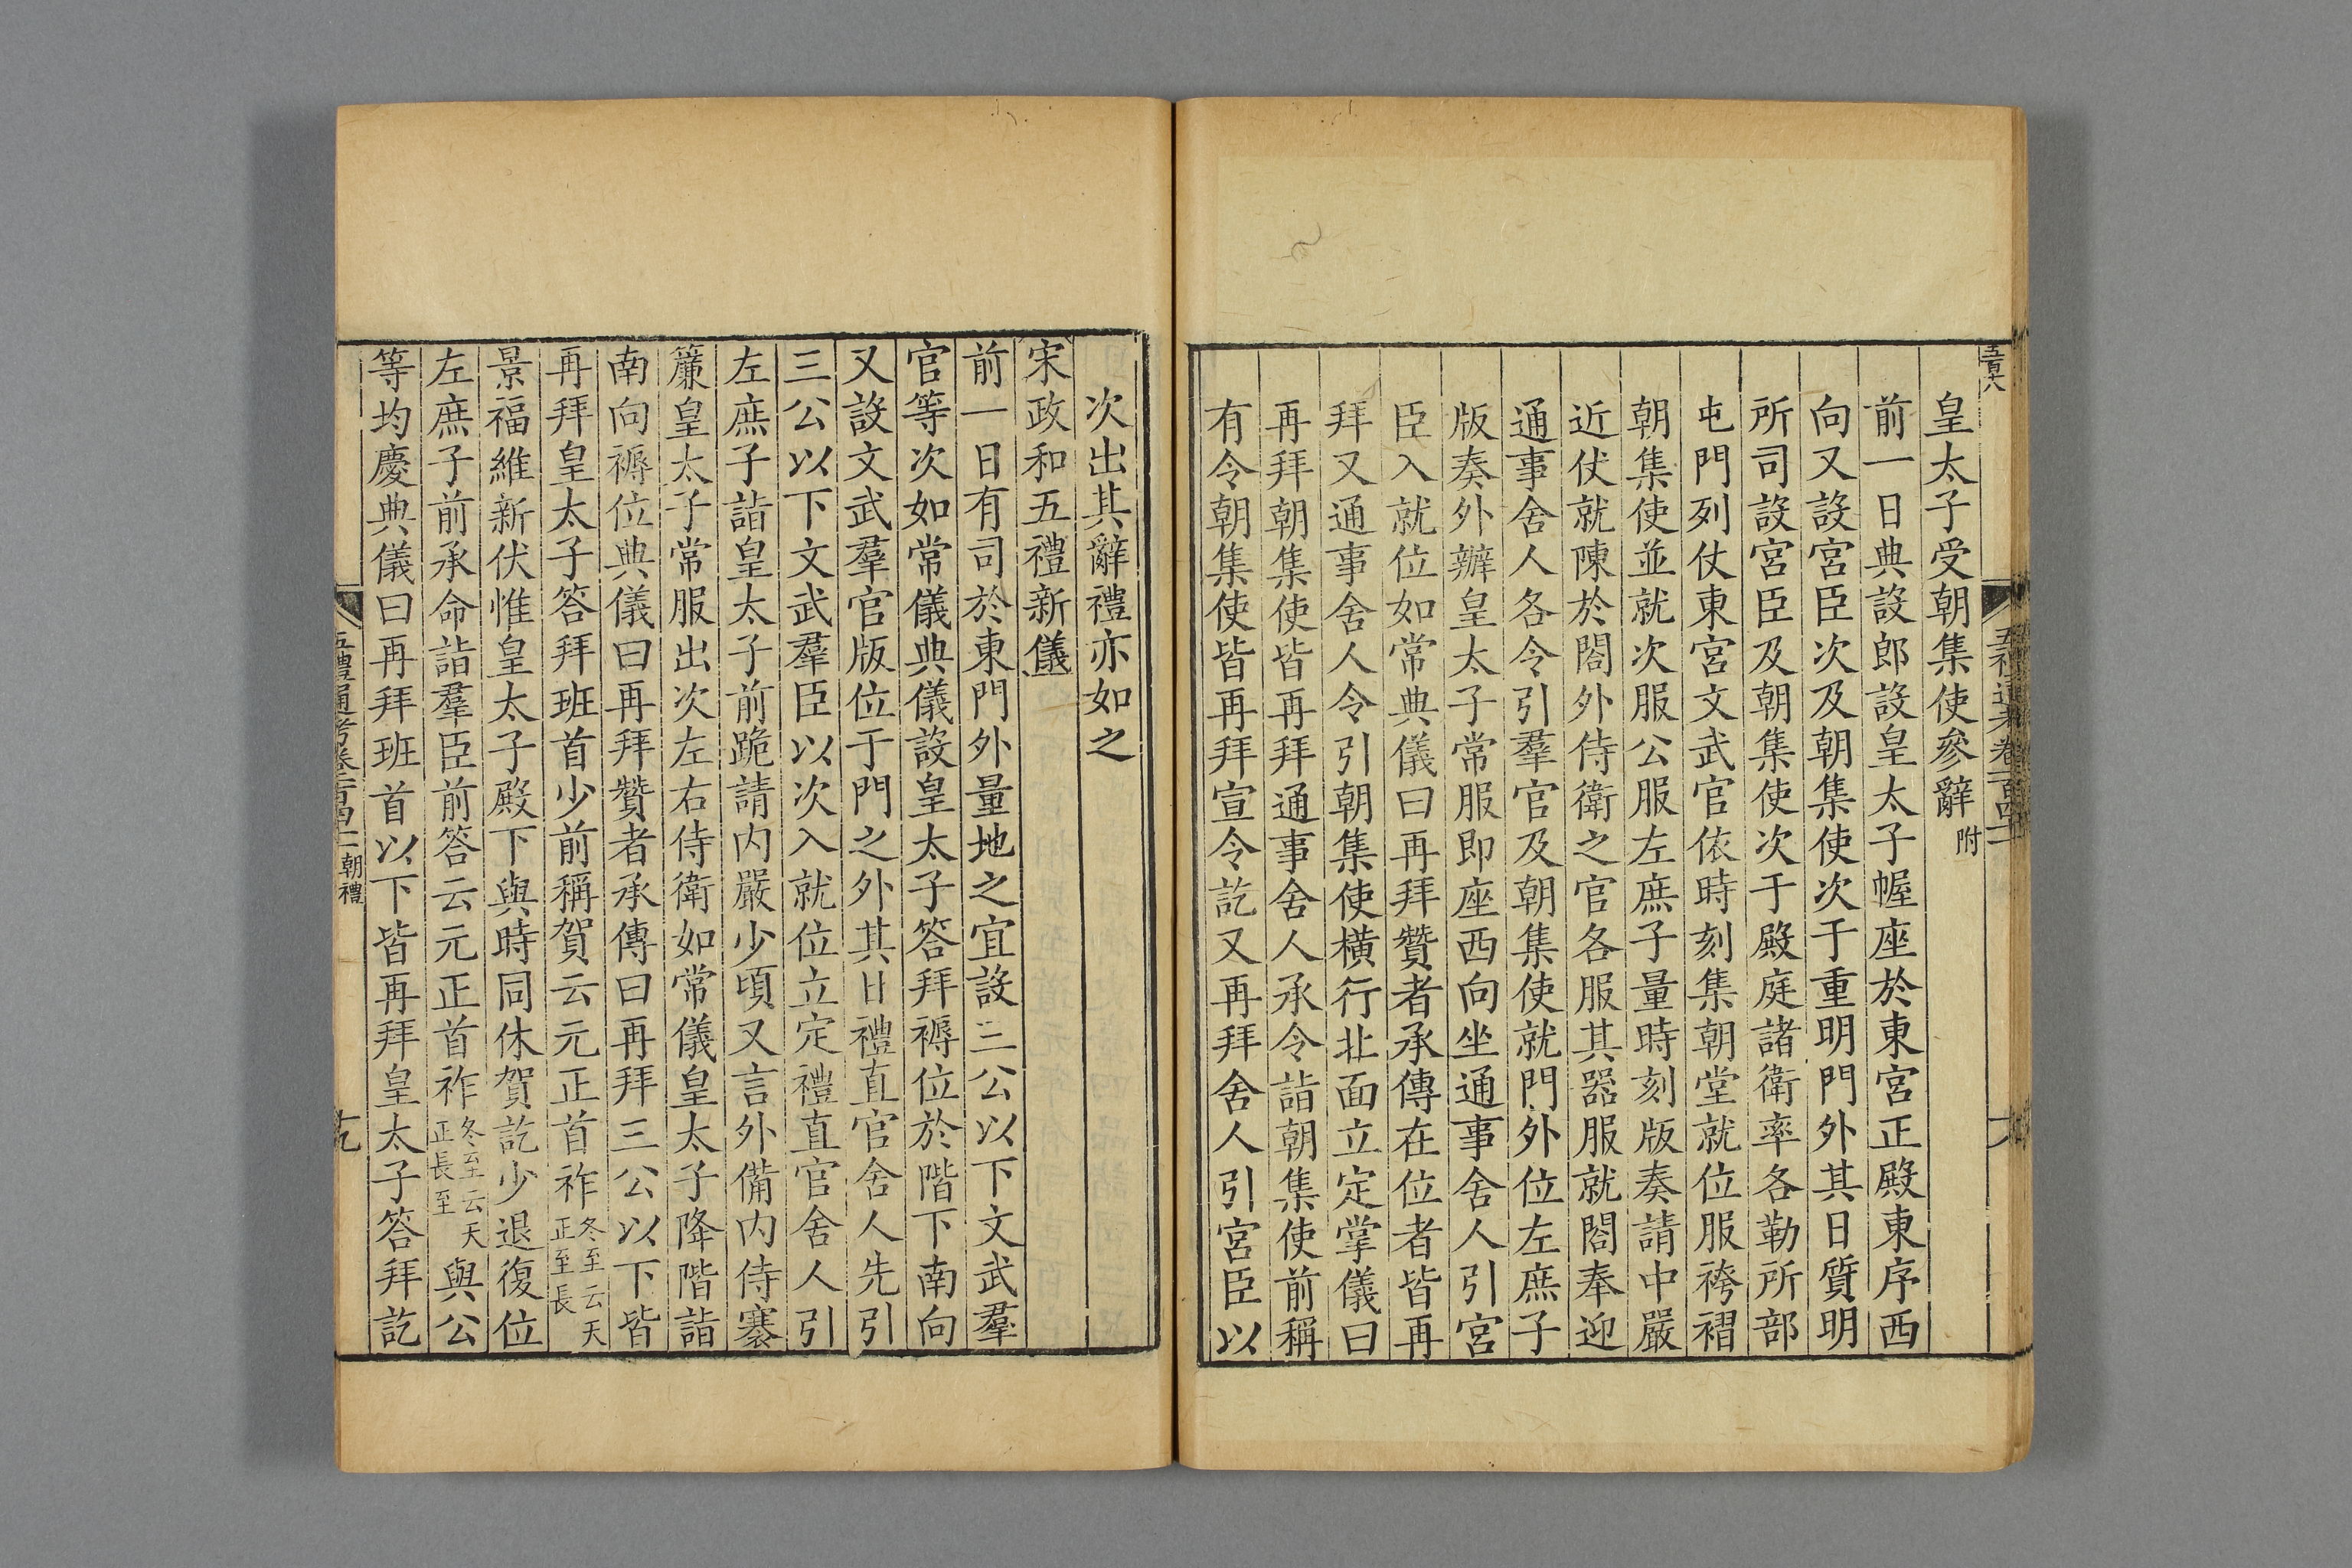 皇太子受朝集使參辭附
前一日典設郎設皇太子幄座於東宮正殿東序西
向又設宮臣次及朝集使次于重明門外其日質明
所司設宮臣及朝集使次于殿庭諸衛率各勒所部
屯門列仗東宮文武官依時刻集朝堂就位服袴褶
朝集使並就次服公服左庶子量時刻版奏請中嚴
近仗就陳於閤外侍衛之官各服其器服就閤奉迎
通事舍人各令引羣官及朝集使就門外位左庶子
版奏外辦皇太子常服即座西向坐通事舍人引宮
臣入就位如常典儀曰再拜贊者承傳在位者皆再
拜又通事舍人令引朝集使橫行北面立定掌儀曰
再拜朝集使皆再拜通事舍人承令詣朝集使前稱
有令朝集使皆再拜宣令訖又再拜舍人引宮臣以
次出其辭禮亦如之
宋政和五禮新儀
前一日有司於東門外量地之宜設三公以下文武羣
官等次如常儀典儀設皇太子答拜褥位於階下南向
又設文武羣官版位于門之外其日禮直官舍人先引
三公以下文武羣臣以次入就位立定禮直官舍人引
左庶子詣皇太子前跪請内嚴少頃又言外備内侍褰
簾皇太子常服出次左右侍衛如常儀皇太子降階詣
南向褥位典儀曰再拜贊者承傳曰再拜三公以下皆
再拜皇太子答拜班首少前稱賀云元正首祚冬至云天正長至
景福維新伏惟皇太子殿下與時同休賀訖少退復位
左庶子前承命詣羣臣前答云元正首祚冬至云天正長至與公
等均慶典儀曰再拜班首以下皆再拜皇太子答拜訖
五禮通考卷一百四十一 朝禮
十九